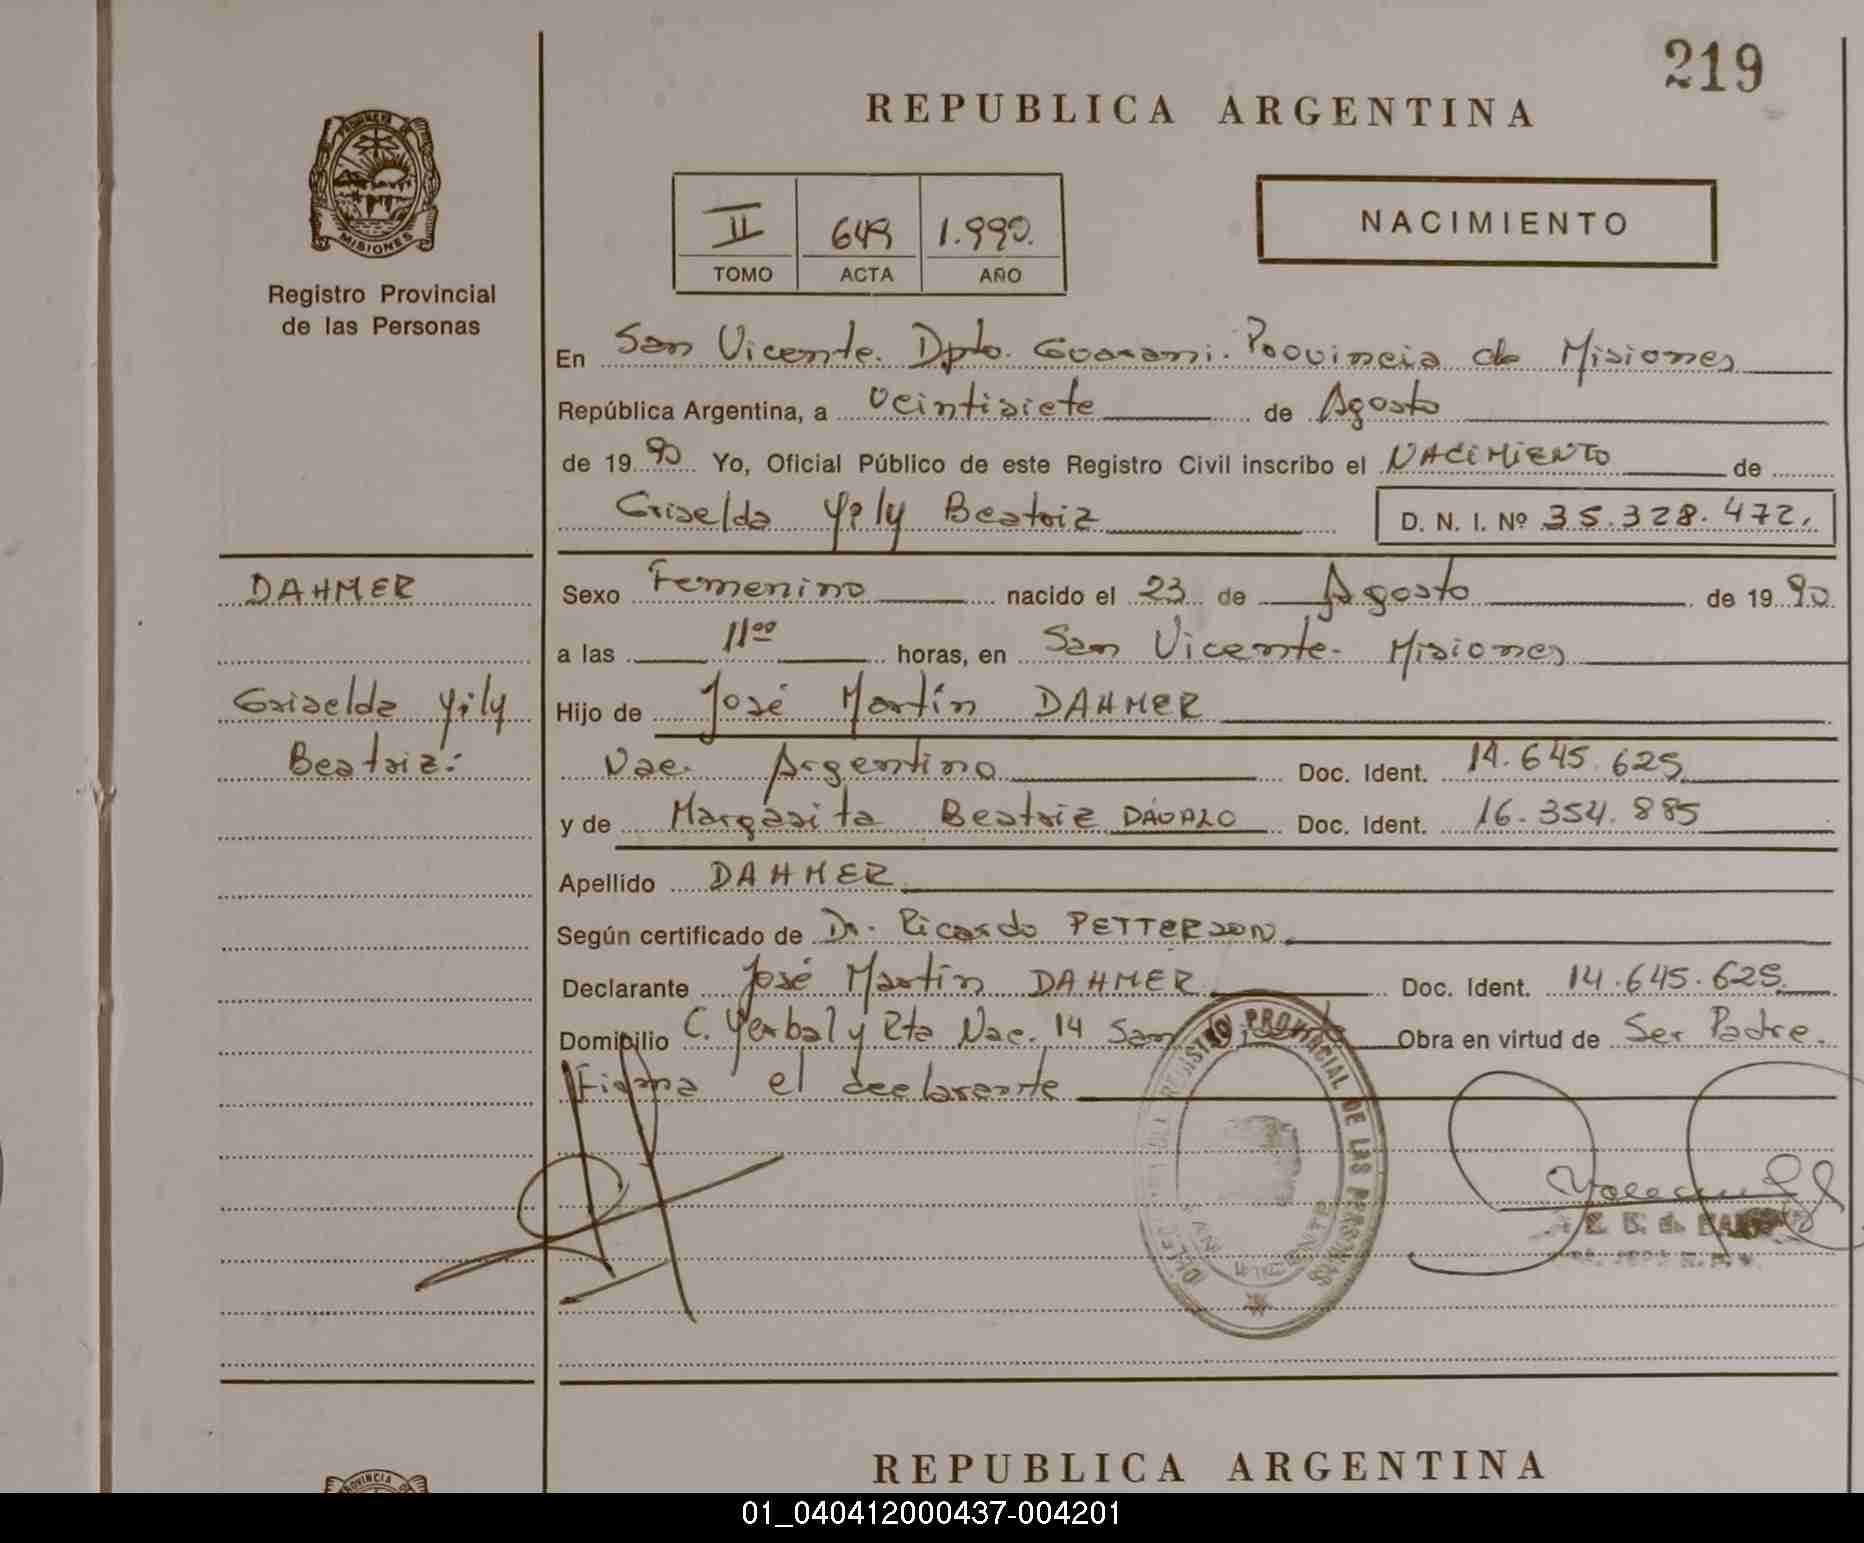 219
REPUBLICA ARGENTINA
PROVINCIA DE
MISIONES
Registro Provincial
de las Personas
II 649 1.990.
TOMO ACTA AÑO
NACIMIENTO
En San Vicente. Dpto. Guarani. Provincia de Misiones
República Argentina, a veintisiete de Agosto
de 19 90 Yo, Oficial Público de este Registro Civil inscribo el NACIMIENTO de
Griselda Yily Beatriz D. N. I. Nº 35.328.472.
DAHMER
Sexo Femenino nacido el 23 de Agosto de 19 90
a las 11ºº horas, en San Vicente. Misiones
Griselda Yily
Beatriz:
Hijo de José Martín DAHMER
Nac. Argentino Doc. Ident. 14.645.625
y de Margarita Beatriz DÁVALO Doc. Ident. 16.354.885
Apellido DAHMER
Según certificado de Dr. Ricardo PETTERSON
Declarante José Martín DAHMER Doc. Ident. 14.645.625
Domicilio C. Yerbal y Rta Nac. 14 San Vicente Obra en virtud de Ser Padre.
Firma el declarante
REGISTRO PROVINCIAL DE LAS PERSONAS
SAN VICENTE
REPUBLICA ARGENTINA
PROVINCIA
01_040412000437-004201